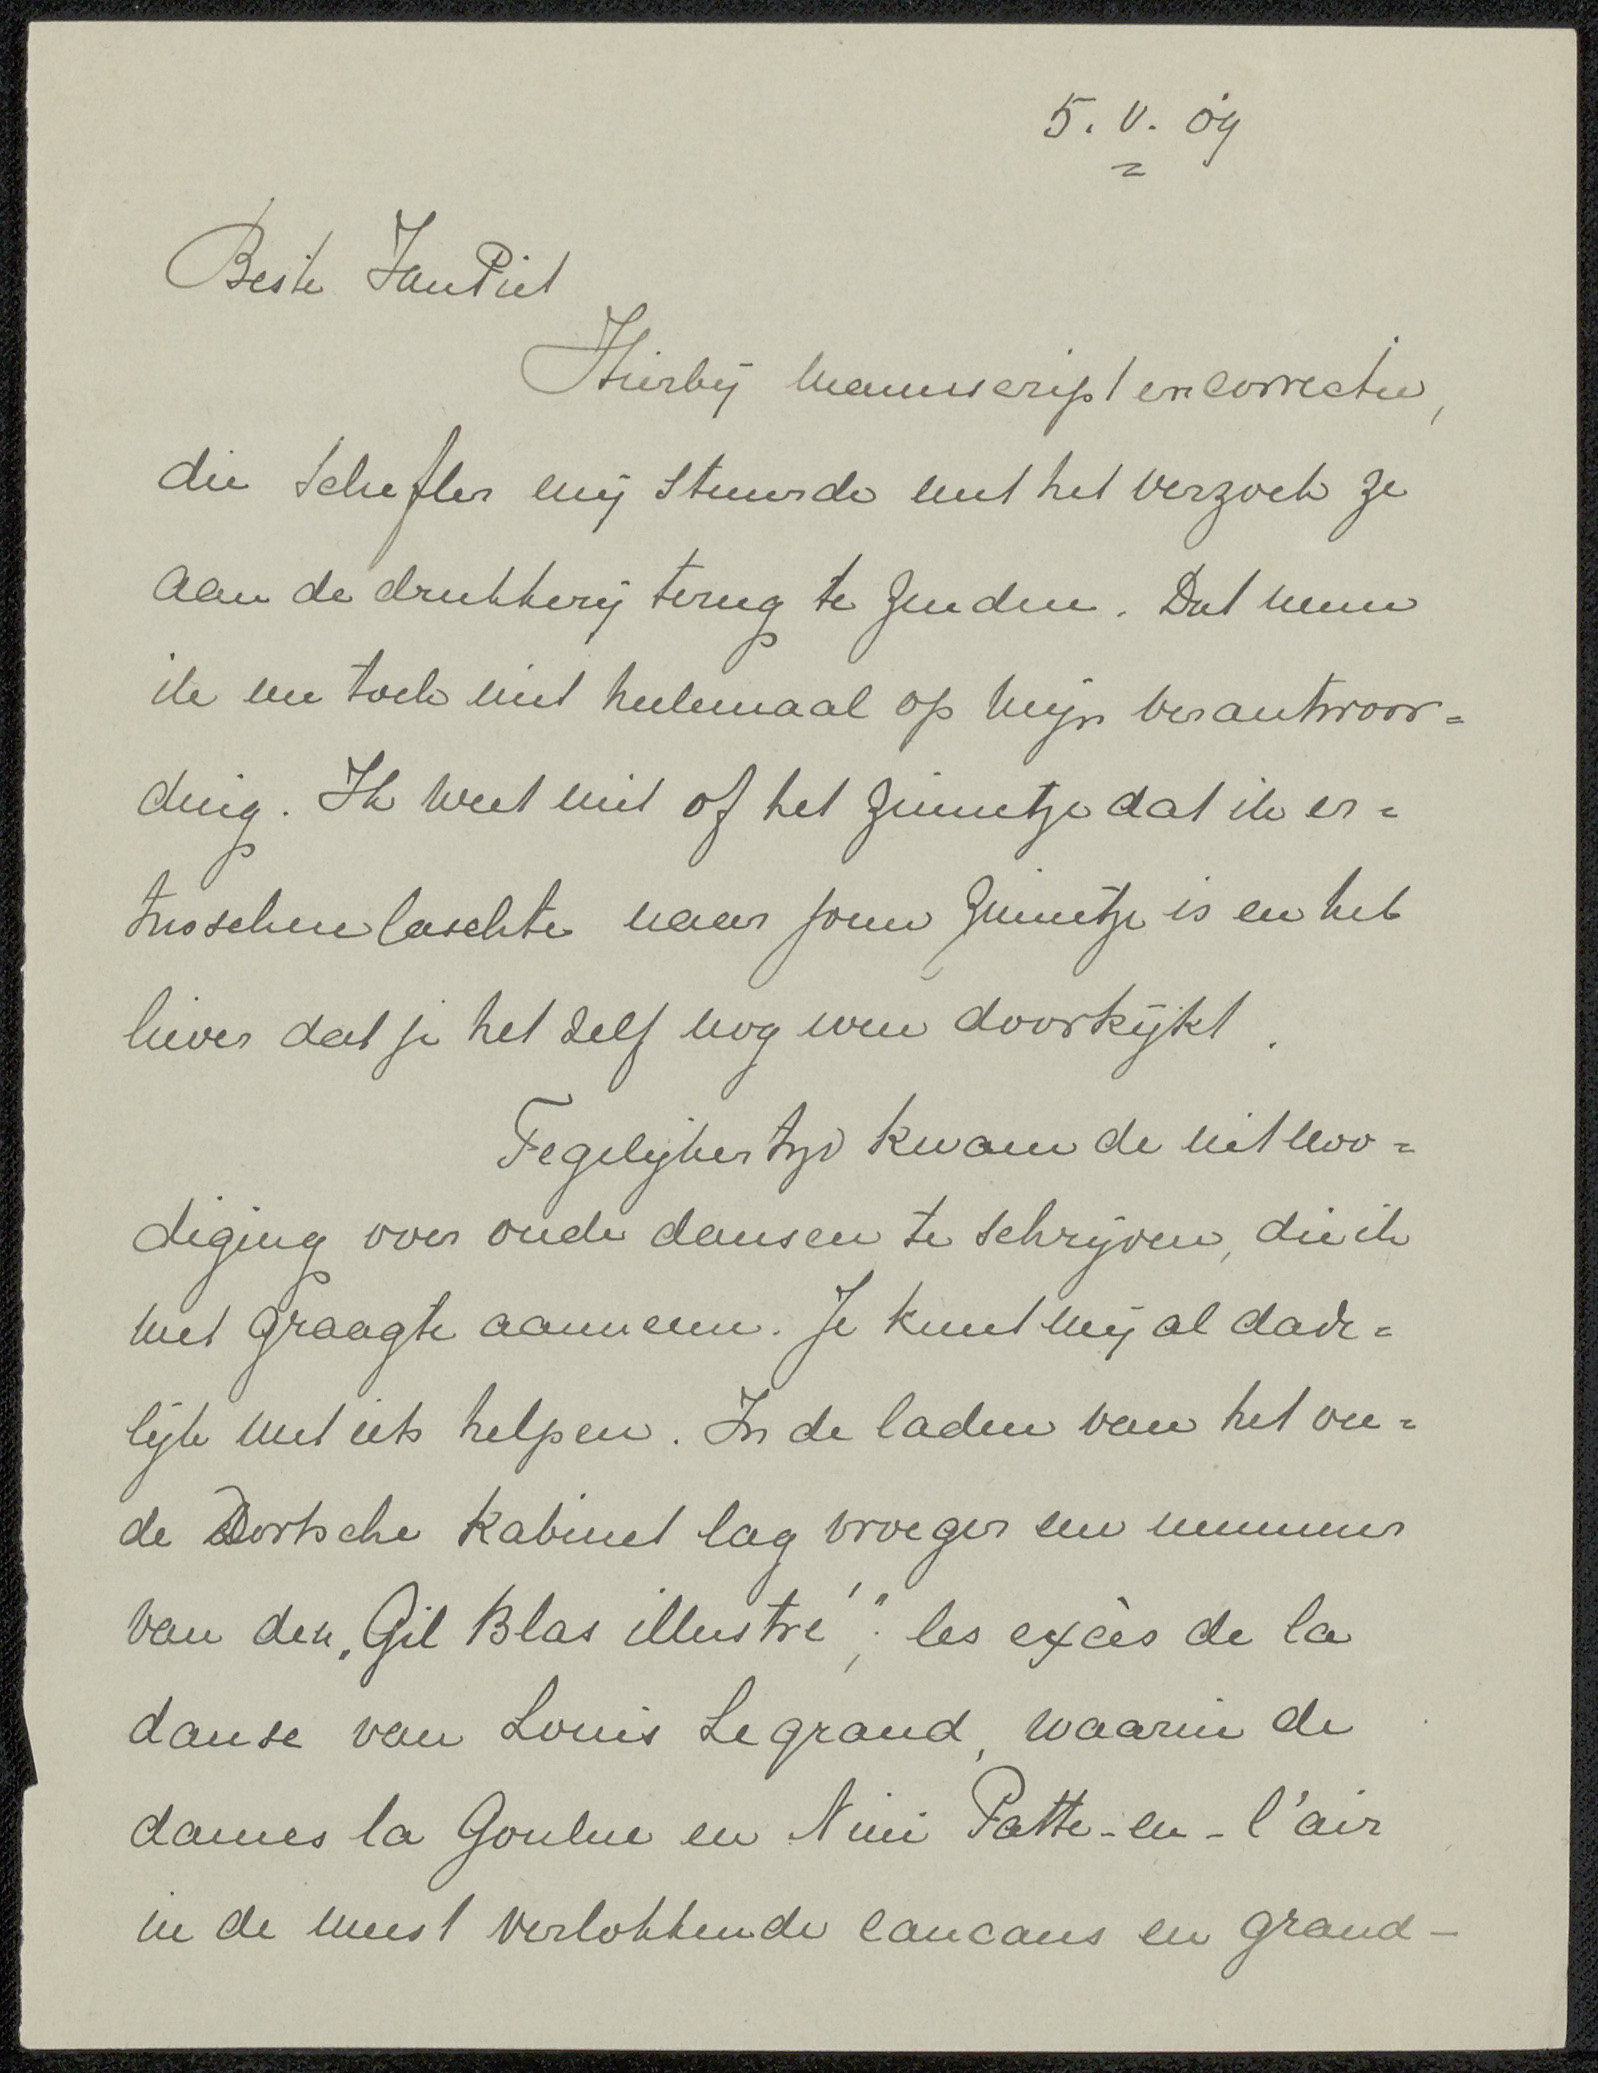 5. V. 09
Beste JanPiet
Hierbij manuscript en correctie,
die Scheffer mij stuurde met het verzoek ze
aan de drukkerij terug te zenden. Dat neem
ik nu toch niet heelemaal op mijn verantwoor=
ding. Ik weet niet of het zinnetje dat ik er=
tusschen laschte naar jouw zinnetje is en heb
liever dat je het zelf nog even doorkijkt.
Tegelijkertijd kwam de uitnoo=
diging over oude dansen te schrijven, die ik
met graagte aanneem. Je kunt mij al dade=
lijk met iets helpen. In de laden van het ou=
de Dortsche kabinet lag vroeger een nummer
van den „Gil Blas illustré”; les excès de la
danse van Louis Legrand, waarin de
dames la Goulue en Nini Patte-en-l'air
in de meest verlokkende cancans en grand-